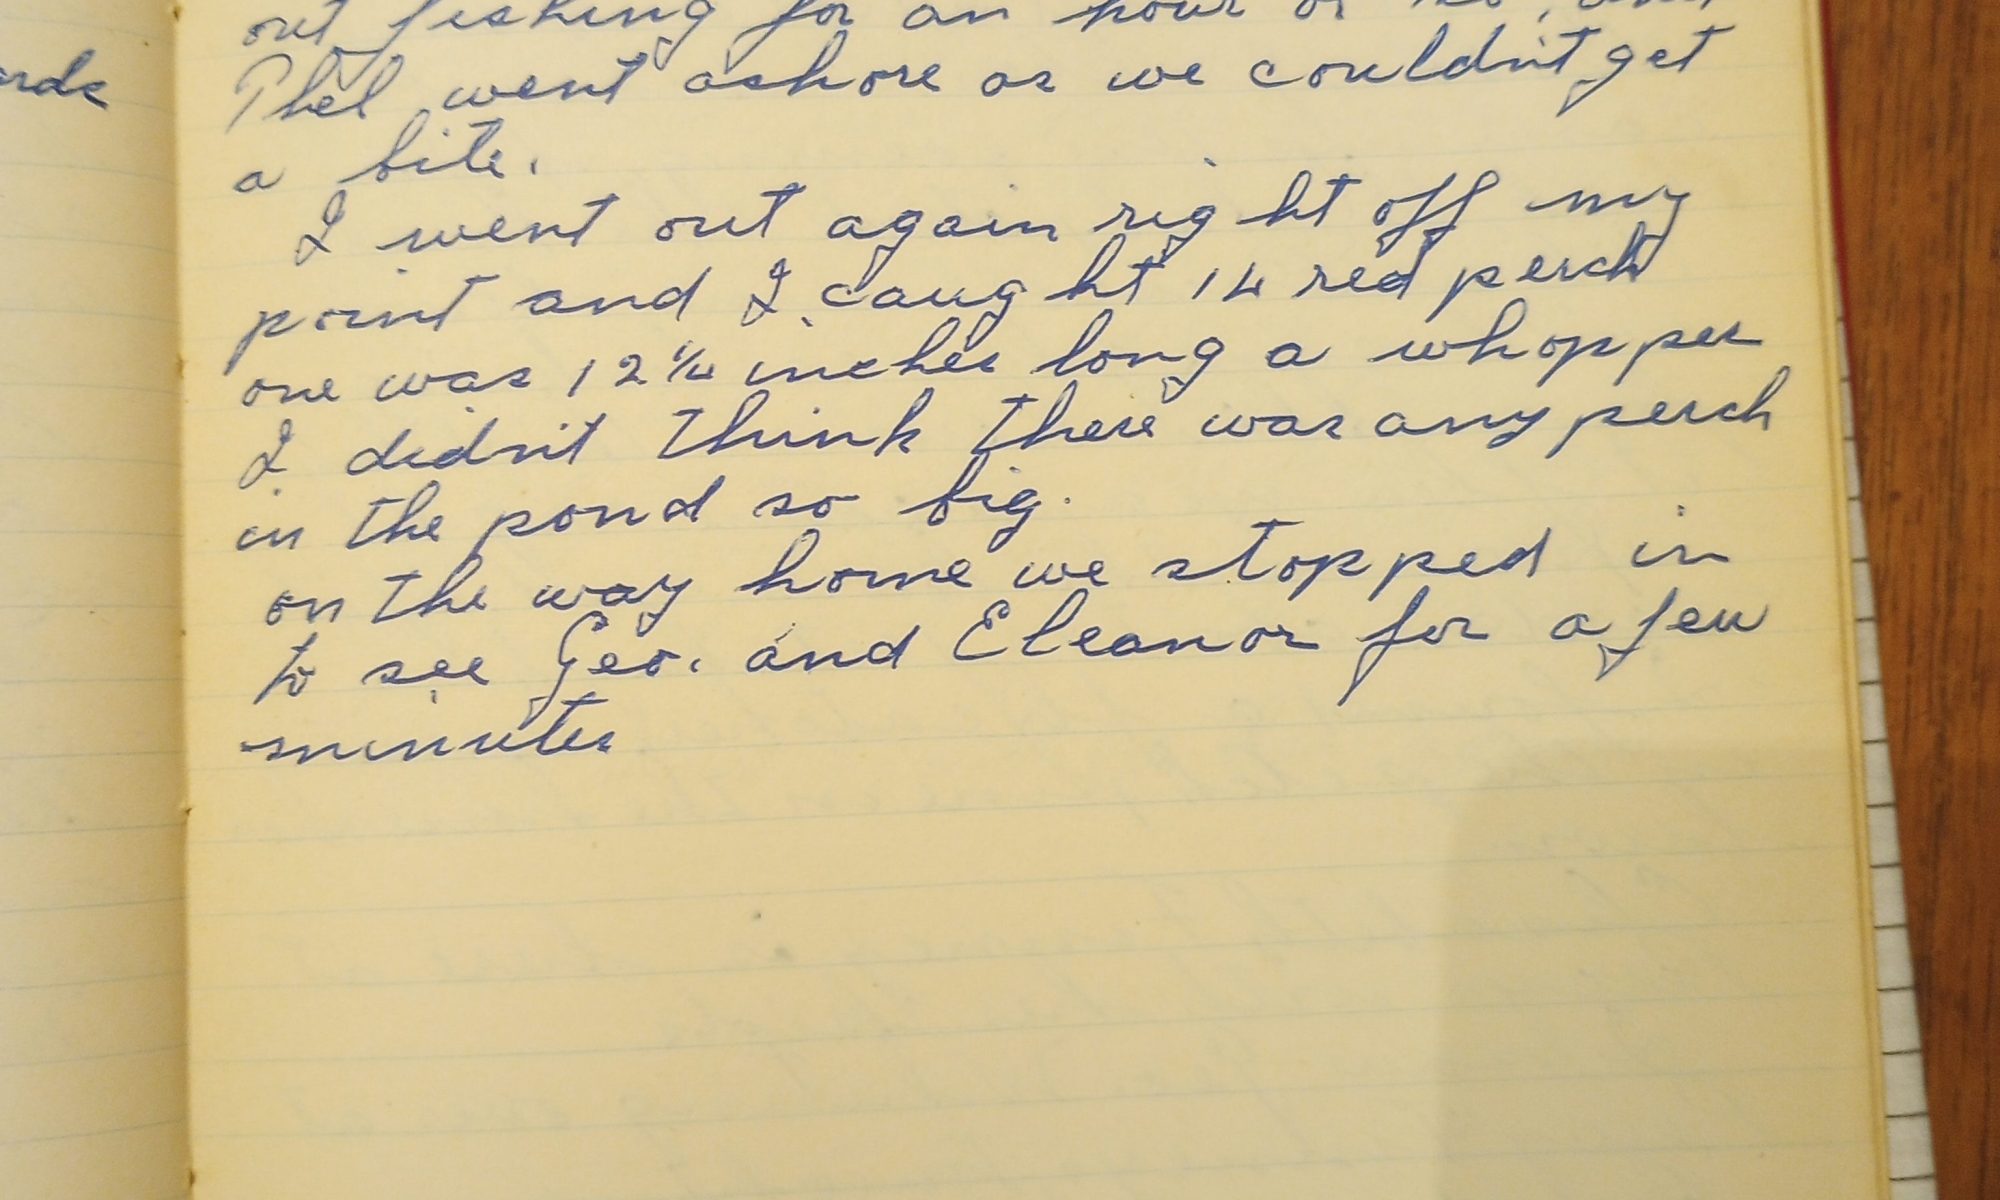 out fishing for an hour or so, and
Phel went ashore as we couldn't get
a bite.
I went out again right off my
point and I caught 14 red perch
one was 12 1/4 inches long a whopper
I didn't think there was any perch
in the pond so big.
on the way home we stopped in
to see Geo. and Eleanor for a few
minutes